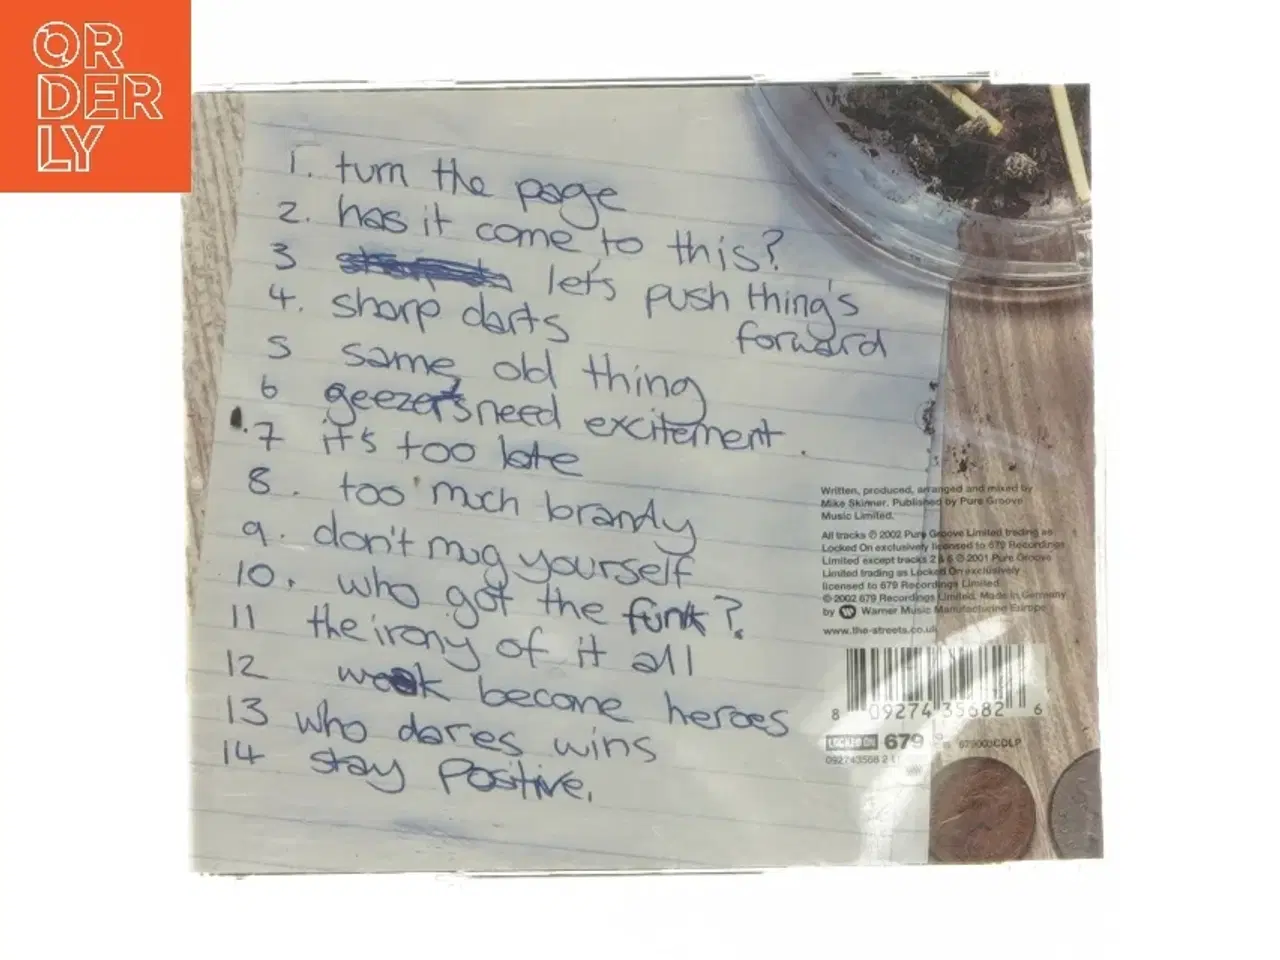 OR
DER
LY
1. turn the page
2. has it come to this?
3 let's push thing's
forward
4. sharp darts
5 same old thing
6 geezers need excitement.
7 it's too late
8. too much brandy
9. don't mug yourself
10. who got the funk?
11 the irony of it all
12 weak become heroes
13 who dares wins
14 stay positive.
Written, produced, arranged and mixed by
Mike Skinner. Published by Pure Groove
Music Limited.
All tracks ℗ 2002 Pure Groove Limited trading as
Locked On exclusively licensed to 679 Recordings
Limited except tracks 2 & 6 ℗ 2001 Pure Groove
Limited trading as Locked On exclusively
licensed to 679 Recordings Limited
© 2002 679 Recordings Limited. Made in Germany
by Warner Music Manufacturing Europe
www.the-streets.co.uk
8 09274 35682 6
LOCKED ON 679 679003CDLP
092743568 2